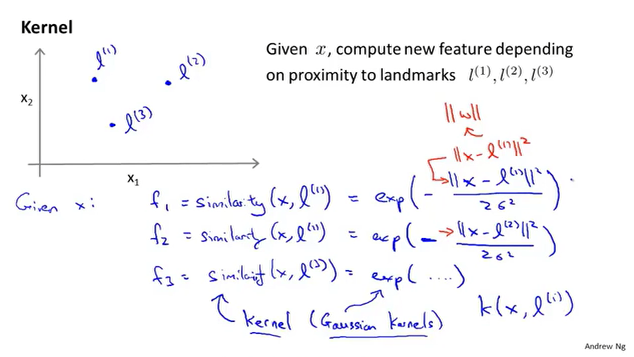 Kernel
Given x, compute new feature depending
on proximity to landmarks l^(1), l^(2), l^(3)
x₂
l^(1)
l^(2)
l^(3)
x₁
||w||
||x - l^(1)||²
Given x: f₁ = similarity(x, l^(1)) = exp(- ||x - l^(1)||² / 2σ²)
f₂ = similarity(x, l^(1)) = exp(- ||x - l^(2)||² / 2σ²)
f₃ = similarity(x, l^(3)) = exp(....)
kernel (Gaussian kernels)
k(x, l^(i))
Andrew Ng